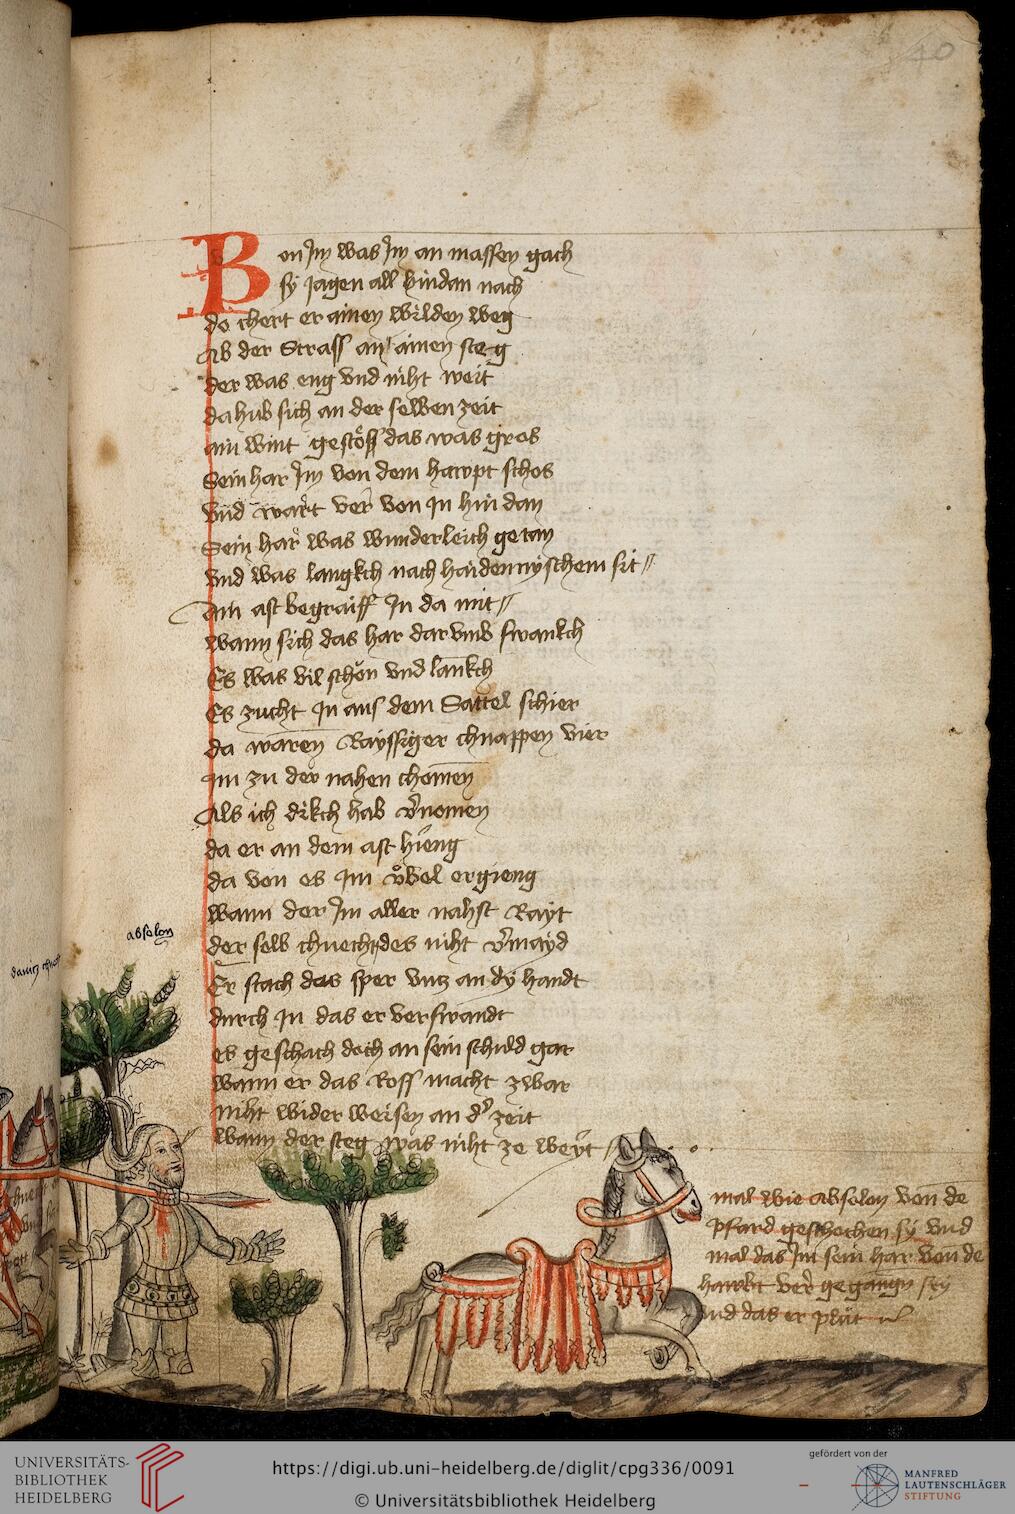 40
Von Jm was Jm an massen gach
sy jagen all hindan nach
do chert er ainen wilden weg
Ab der Strass an ainen steg
der was eng vnd niht weit
da hub sich an der selben zeit
ain wint gestöss das was gros
Sein har Jm von dem hawpt schos
vnd wart ver von Jn hin dan
Sein har was wunderleich getan
vnd was langkch nach haidennyschem sit
Ain ast begraiff Jn da mit
wann sich das har dar vmb swankch
Es was vil schön vnd lankch
Es zucht Jn aus dem Sattel schier
da waren Rayssiger chnappen vier
im zu der nahen chomen
Als ich dikch hab v̓nomen
da er an dem ast hieng
da von es Jm v̊bel ergieng
wann der Jm aller nahst Rayt
der selb chnecht des niht v̓mayd
Er stach das sper vntz an dy handt
durch Jn das er verswandt
es geschach doch an sein schuld gar
wann er das Ross macht zwar
niht wider weisen an d̓ zeit
wann der steg was niht ze weyt
absolon
mal wie absolon von de
pfard geschochen sy vnd
mal das Jm sein har von de
hawbt ver gegangn sey
vnd das er plut
UNIVERSITÄTS-
BIBLIOTHEK
HEIDELBERG
https://digi.ub.uni-heidelberg.de/diglit/cpg336/0091
© Universitätsbibliothek Heidelberg
gefördert von der
MANFRED
LAUTENSCHLÄGER
STIFTUNG